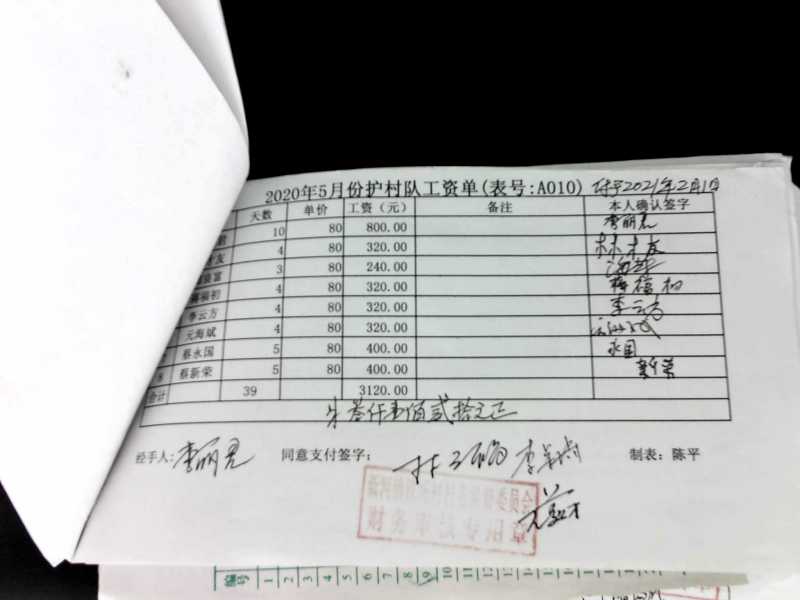 2020年5月份护村队工资单(表号:A010) 付于2021年2月1日
天数 单价 工资（元） 备注 本人确认签字
10 80 800.00 李丽君
友 4 80 320.00 林才友
富 3 80 240.00
福初 4 80 320.00 福初
李云方 4 80 320.00 李云方
元海斌 4 80 320.00
蔡永国 5 80 400.00 永国
8 蔡新荣 5 80 400.00 新荣
合计 39 3120.00
叁仟壹佰贰拾元正
经手人: 李丽君 同意支付签字: 制表: 陈平
委员会
财务审核专用章
编号 1 2 3 4 5 6 7 8 9 10 11 12 13 14 15 16